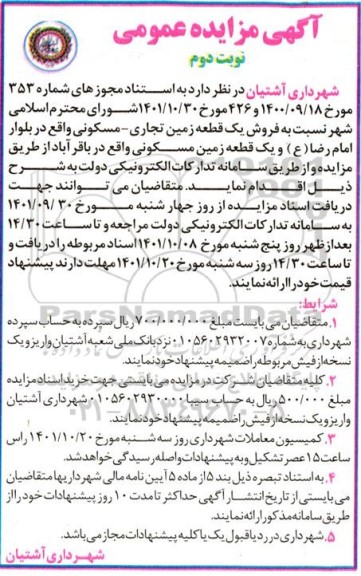 آگهی مزایده عمومی
نوبت دوم
شهرداری آشتیان در نظر دارد به استناد مجوز های شماره ۳۵۳
مورخ ۱۴۰۰/۰۹/۱۸ و ۴۲۶ مورخ ۱۴۰۱/۱۰/۳۰ شورای محترم اسلامی
شهر نسبت به فروش یک قطعه زمین تجاری - مسکونی واقع در بلوار
امام رضا (ع) و یک قطعه زمین مسکونی واقع در باقر آباد از طریق
مزایده و از طریق سامانه تدارکات الکترونیکی دولت به شرح
ذیل اقدام نماید. متقاضیان می توانند جهت
دریافت اسناد مزایده از روز چهار شنبه مورخ ۱۴۰۱/۰۹/۳۰
به سامانه تدارکات الکترونیکی دولت مراجعه و تا ساعت ۱۴/۳۰
بعد از ظهر روز پنج شنبه مورخ ۱۴۰۱/۱۰/۰۸ اسناد مربوطه را دریافت و
تا ساعت ۱۴/۳۰ روز سه شنبه مورخ ۱۴۰۱/۱۰/۲۰ مهلت دارند پیشنهاد
قیمت خود را ارائه نمایند.
شرایط:
۱. متقاضیان می بایست مبلغ ۷۰۰/۰۰۰/۰۰۰ ریال سپرده به حساب سپرده
شهرداری به شماره ۰۱۰۵۶۰۲۹۳۲۰۰۷ نزد بانک ملی شعبه آشتیان واریز و یک
نسخه از فیش مربوطه را ضمیمه پیشنهاد خود نمایند.
۲. کلیه متقاضیان شرکت در مزایده می بایستی جهت خرید اسناد مزایده
مبلغ ۵۰۰/۰۰۰ ریال به حساب سیبا ۰۱۰۵۶۰۲۹۳۰۰۰۰ شهرداری آشتیان
واریز و یک نسخه از فیش را ضمیمه پیشنهاد خود نمایند.
۳. کمیسیون معاملات شهرداری روز سه شنبه مورخ ۱۴۰۱/۱۰/۲۰ راس
ساعت ۱۵ عصر تشکیل و به پیشنهادات واصله رسیدگی خواهد شد.
۴. به استناد تبصره ذیل بند ۵ از ماده ۵ آیین نامه مالی شهرداریها متقاضیان
می بایستی از تاریخ انتشار آگهی حداکثر تا مدت ۱۰ روز پیشنهادات خود را از
طریق سامانه مذکور ارائه نمایند.
۵. شهرداری در رد یا قبول یک یا کلیه پیشنهادات مجاز می باشد.
شهرداری آشتیان
ParsNamadData